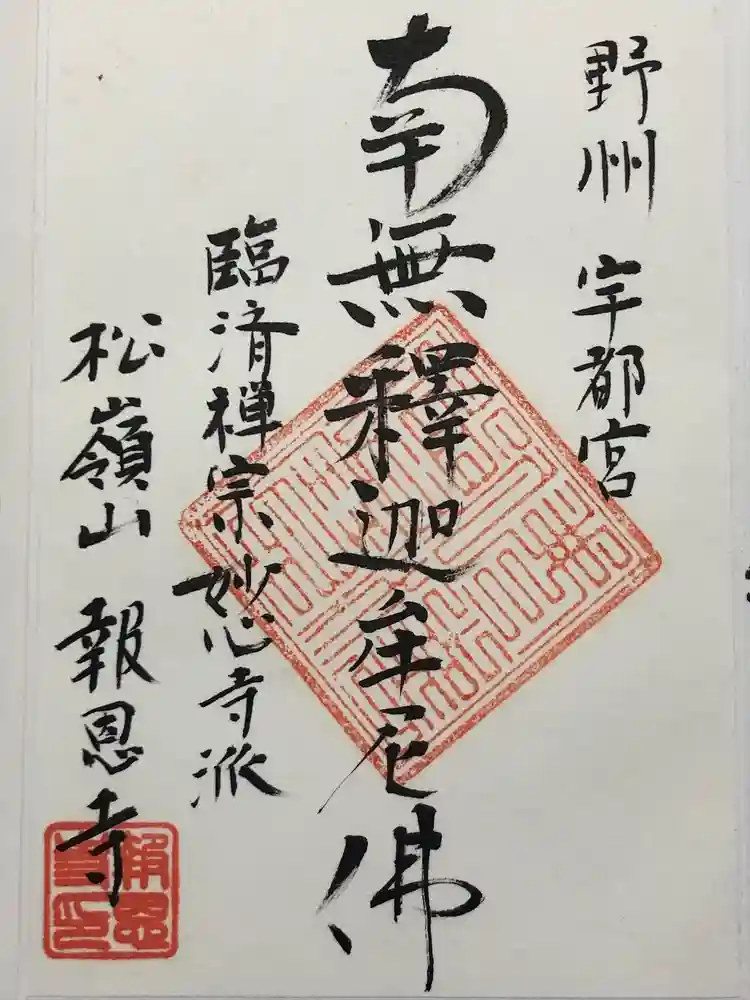 野州 宇都宮
南無釋迦牟尼佛
臨済禅宗妙心寺派
松嶺山 報恩寺